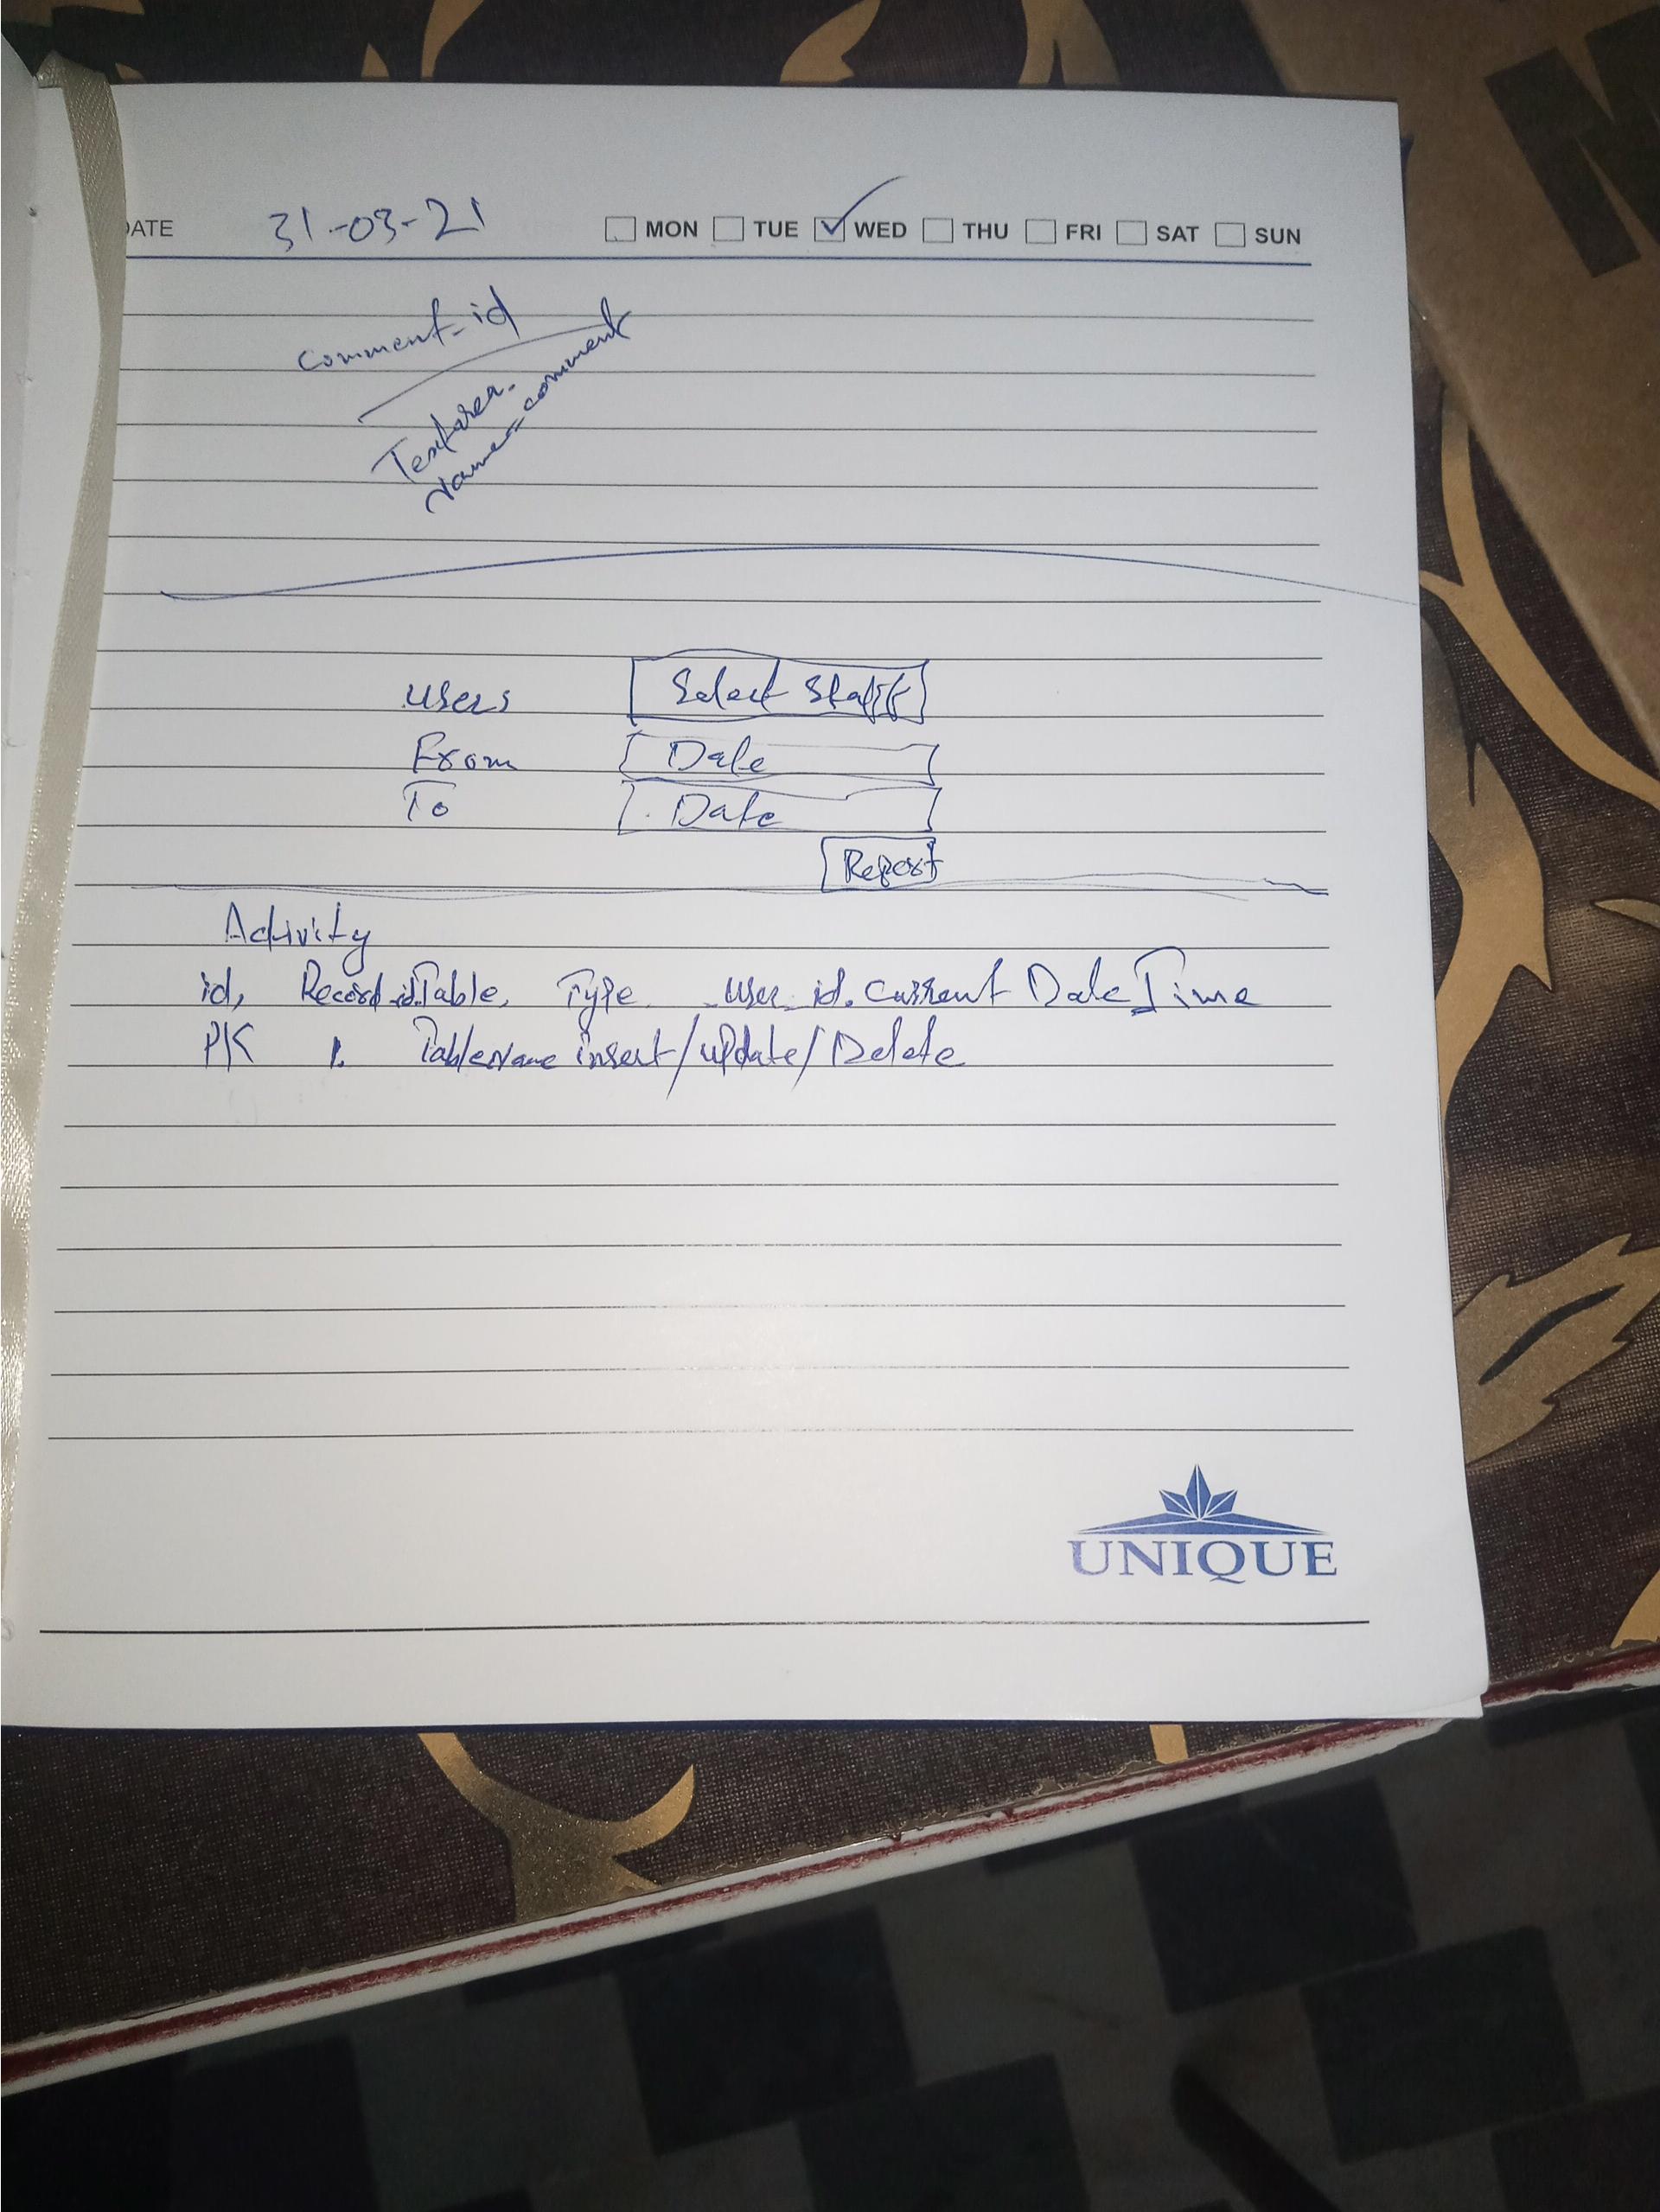 DATE 31-03-21 MON TUE WED THU FRI SAT SUN
comment-id
Textarea.
Name-comment
users Select Staff
From Date
To Date
Report
Activity
id, Record_id. Table, Type user_id. Current Date Time
PK 1. TableName insert/update/Delete
UNIQUE